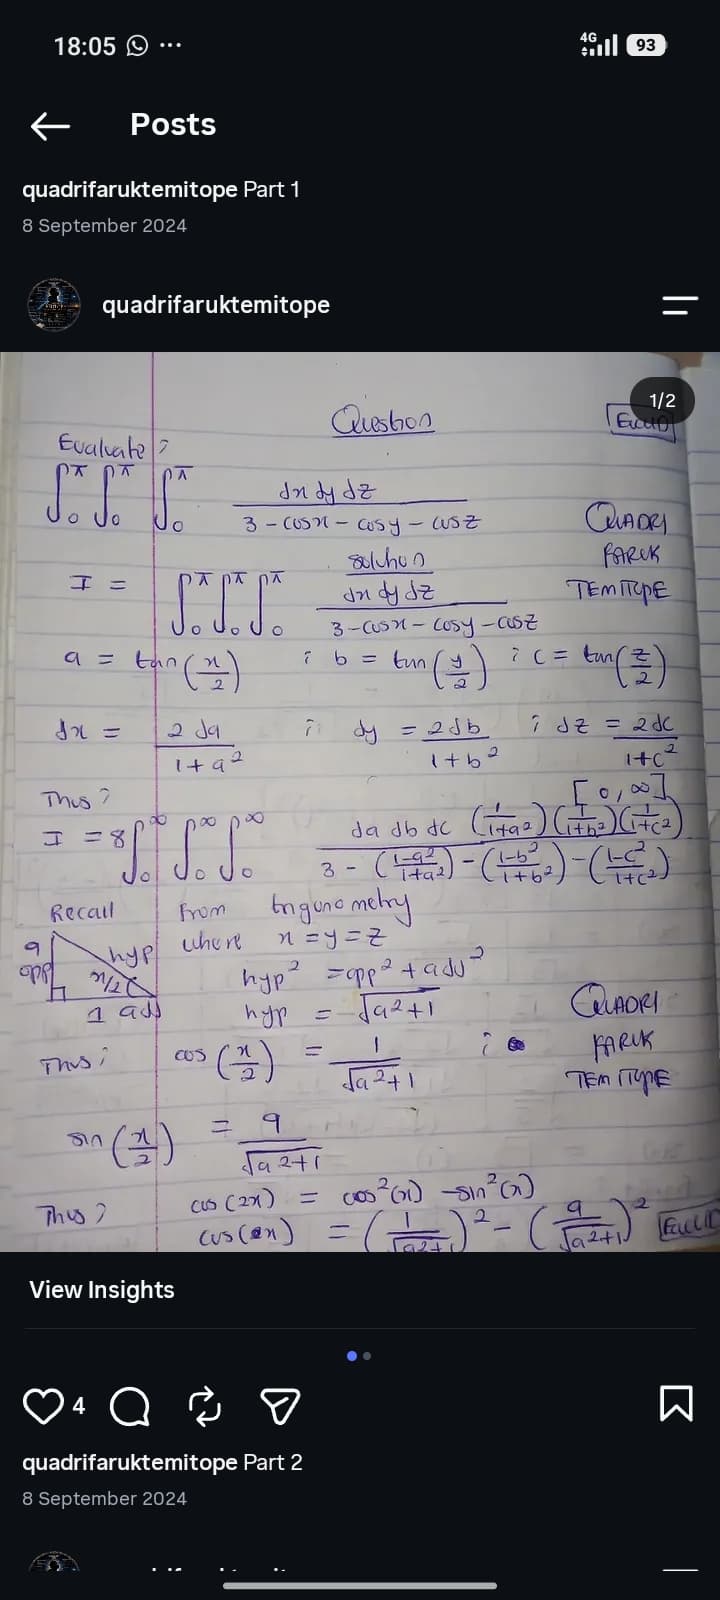 18:05 ...
4G 93
Posts
quadrifaruktemitope Part 1
8 September 2024
quadrifaruktemitope
1/2
Question
Euclid
Evaluate;
∫₀^π ∫₀^π ∫₀^π dx dy dz / (3 - cosx - cosy - cosz)
QUADRI
FARUK
TEMITOPE
solution
I = ∫₀^π ∫₀^π ∫₀^π dx dy dz / (3 - cosx - cosy - cosz)
a = tan(x/2) ; b = tan(y/2) ; c = tan(z/2)
dx = 2da/(1+a²) ; dy = 2db/(1+b²) ; dz = 2dc/(1+c²)
Thus; [0, ∞]
I = 8∫₀^∞ ∫₀^∞ ∫₀^∞ da db dc (1/(1+a²))(1/(1+b²))(1/(1+c²)) / (3 - ((1-a²)/(1+a²)) - ((1-b²)/(1+b²)) - ((1-c²)/(1+c²)))
Recall from trigonometry
where x = y = z
a opp hyp x/2 1 adj
hyp² = opp² + adj²
hyp = √(a²+1)
QUADRI
FARUK
TEMITOPE
Thus; cos(x/2) = 1/√(a²+1) ;
sin(x/2) = a/√(a²+1)
Thus; cos(2x) = cos²(x) - sin²(x)
cos(x) = (1/√(a²+1))² - (a/√(a²+1))²
Euclid
View Insights
4
quadrifaruktemitope Part 2
8 September 2024